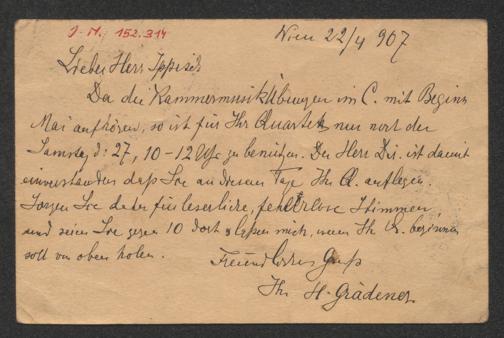 J. N. 152.314
Wien 22/4 907
Lieber Herr Ippisch
Da die Kammermusikübungen im C. mit Beginn
Mai aufhören, so ist für Ihr Quartett nur noch der
Samstag d. 27, 10-12 Uhr zu benützen. Der Herr Dir. ist damit
einverstanden daß Sie an diesem Tage Ihr Q. auflegen.
Sorgen Sie daher für leserliche, fehlerlose Stimmen,
und seien Sie gegen 10 dort & lassen mich, wenn Ihr Q. beginnen
soll von oben holen.
Freundlichen Gruß
Ihr H. Grädener